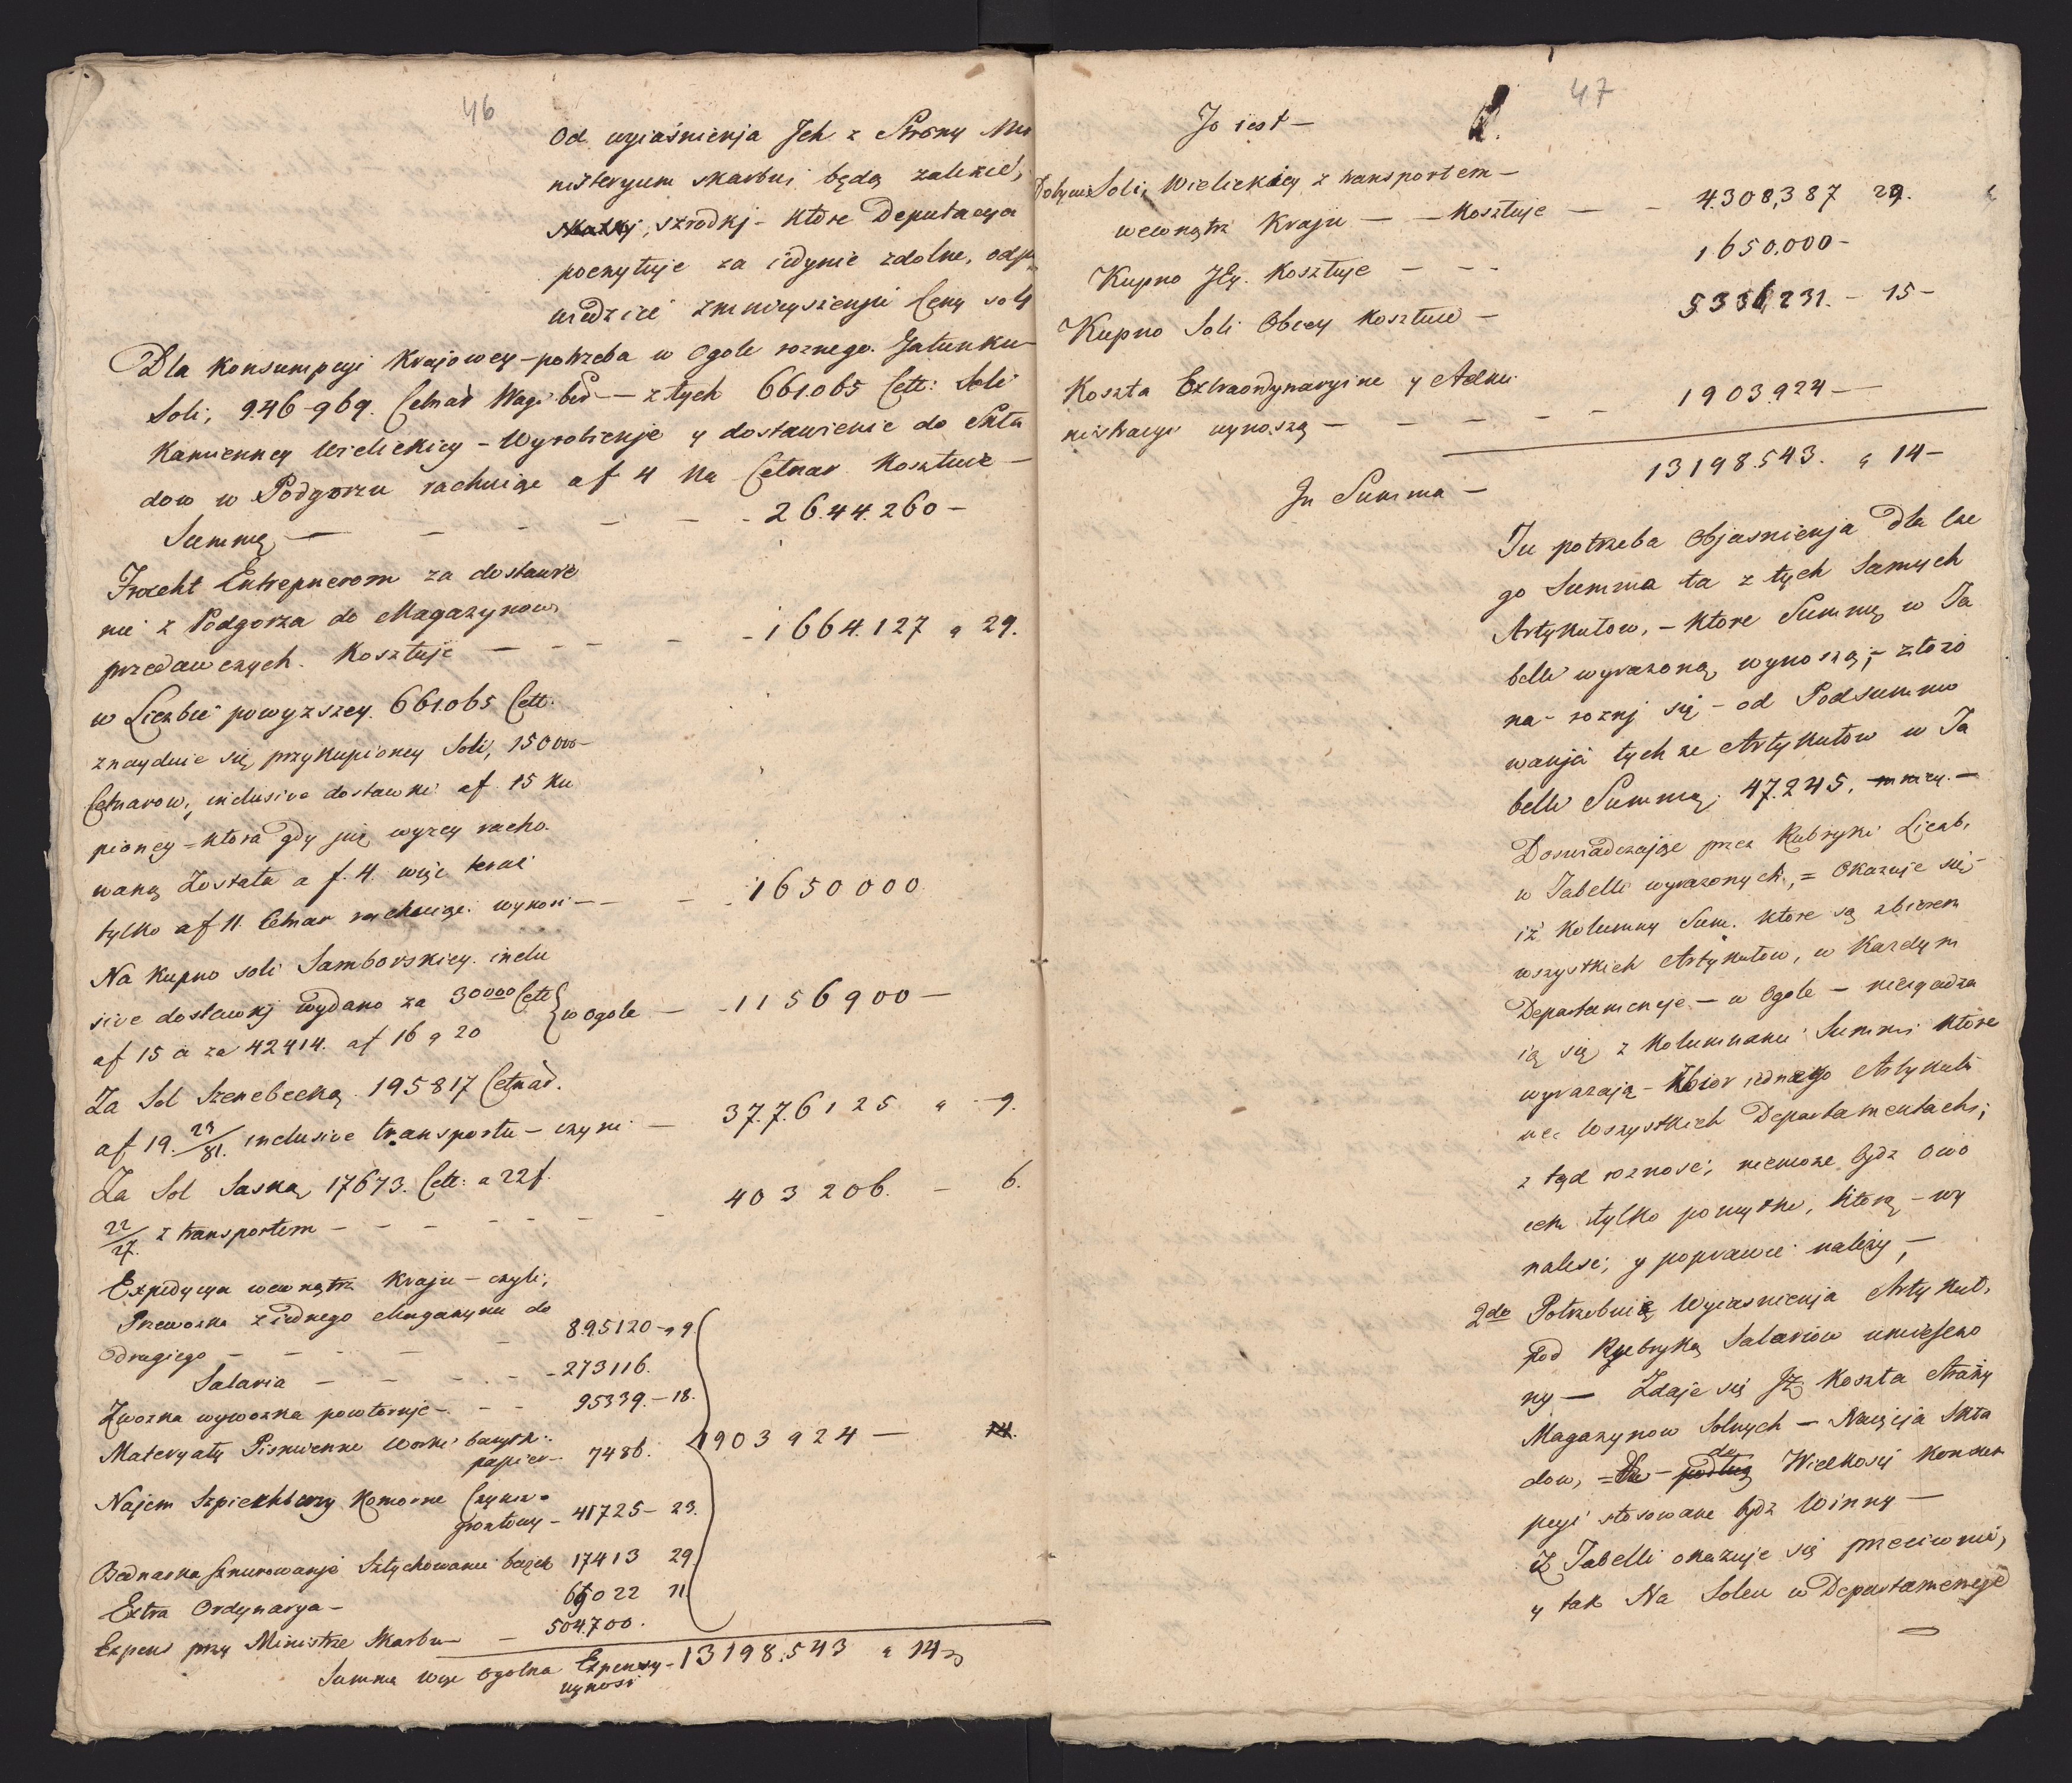 46
Od wyiaśnienja Jch z Strony Mi
nisteryum skarbu; będą zależeć,
szrodkj - które Deputacya
poczytuje za iedynie zdolne, odpo
wiedzieć zmnieyszenju Ceny soli
Dla konsumpcyi Krajowey - potrzeba w Ogole roznego Gatunku
Soli, 946-969. Cetnar Wagi bie — z tych 661.065 Cett: Soli
Kamienney Wielickiey - Wyrobienje y dostawienie do Skła
dow w Podgorzu rachuiąc af 4 na Cetnar kosztuie —
Summę — — — — — - 26.44.260 -
Fracht Entreprenerom za dostawie
nie z Podgorza do Magazynow
przedawczych. Kosztuje — — — - 1664.127 „ 29.
w Liczbie powyzszey 661.065 Cett.
znayduie się przykupioney Soli, 15000-
Cetnarow, inclusive dostawki af. 15 ku
pioney - która gdy już wyzey racho.
waną Została a f. 4. więc teraz
tylko af 11. Cetnar rachuiąc wynosi — - 1650000
Na Kupno soli Samborskiey inclu
sive dostawkj wydano za 30000 Cett
af 15 a za 42414. af 16 „ 20 } w ogole — - 1156900 —
Za Sol Szenebecką 195817 Cetnar.
af 19. 29/81. inclusive transportu - czyni — 37.7.6125 „ 9.
Za Sol Saską 17673. Cett: a 22f.
22/27. z transportem — — — — 403206. — 6.
Expedycya wewnątrz Kraju - czyli,
Przewozka z iednego Magazynu do
drugiego — — — — 895120 - „ 9.
Salaria — — — - 273116.
Zwozka wywozka powtornie - - - 95339. - 18.
Materyały Piśmienne Worki baryłki
papier - 7486. 1903924 — 14.
Najem Szpichlerzy Komorne Czynsz
gruntowy - 41725 - 23.
Bednarka sznurowanje Sztychowanie beczek 17413 29.
Extra Ordynarya - 69022 11
Expens przy Ministrze Skarbu — 504.700.
Summa więc ogolna Expensy - 13198.543 „ 14
wynosi
47
To iest —
Dobycie Soli Wielickiey z transportem —
wewnątrz Kraju — — Kosztuje — - 4.308,387 29.
Kupno JEy. Kosztuje — - - 1650,000 -
Kupno Soli Obcey Kosztuie — 5336,231. - 15 -
Koszta Extraordynaryine y Admi
nistracyi wynoszą — — — — - 1903924 —
Jn Summa — 13198.543. „ 14 -
Tu potrzeba Objasnienja dla cze
go Summa ta z tych samych
Artykułow, - które Summę w Ta
belli wyrażoną wynoszą, - złożo
na - roznj się - od Podsummo
wanja tych ze Artykułow w Ta
belli Summą; 47.245.
Doswiadczając przez Rubryki Liczb,
w Tabelli wyrażonych, = Okazuje się
iż Kolumny Sum. które są zbiorem
wszystkich Artykułow, w Każdym
Departamencje - w Ogole - niezgadza
ią się z Kolumnami Summ; które
wyrażają - Zbior iednego Artykułu
we Wszystkich Departamentach;
z tąd roznosc; niemoze bydz owo
cem tylko pomyłki, którą - wy
nalesc; y poprawic należy, —
2do Potrzebuię Wyiasnienja Artykuł,
pod Rubryką Salariow umieszczo
ny — Zdaje się JŻ Koszta Straży
Magazynow Solnych — Naięcia Skła
dow, = do Wielkosci konsum
pcyi stosowane bydz Winny —
Z Tabelli okazuje się przeciwnie,
y tak Na Solcu w Departamencje